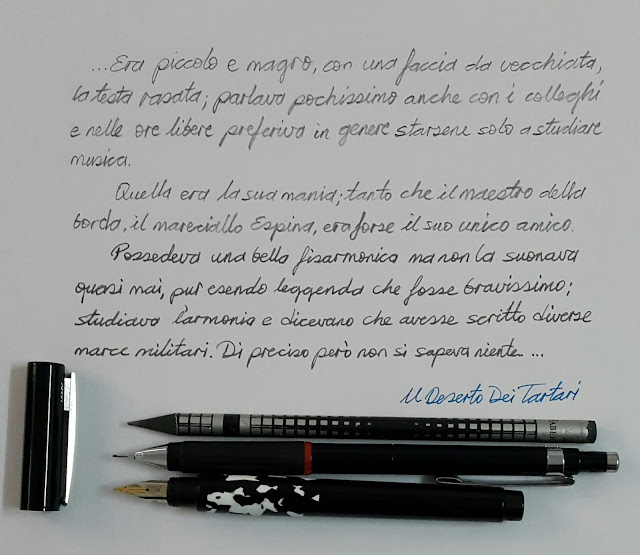 ...Era piccolo e magro, con una faccia da vecchiata,
la testa rasata; parlava pochissimo anche con i colleghi
e nelle ore libere preferiva in genere starsene solo a studiare
musica.
Quella era la sua mania; tanto che il maestro della
borda, il maresciallo Espina, era forse il suo unico amico.
Possedeva una bella fisarmonica ma non la suonava
quasi mai, pur esendo leggenda che fosse bravissimo;
studiava l'armonia e dicevano che avesse scritto diverse
marce militari. Di preciso però non si sapeva niente ...
Il Deserto Dei Tartari
FABER